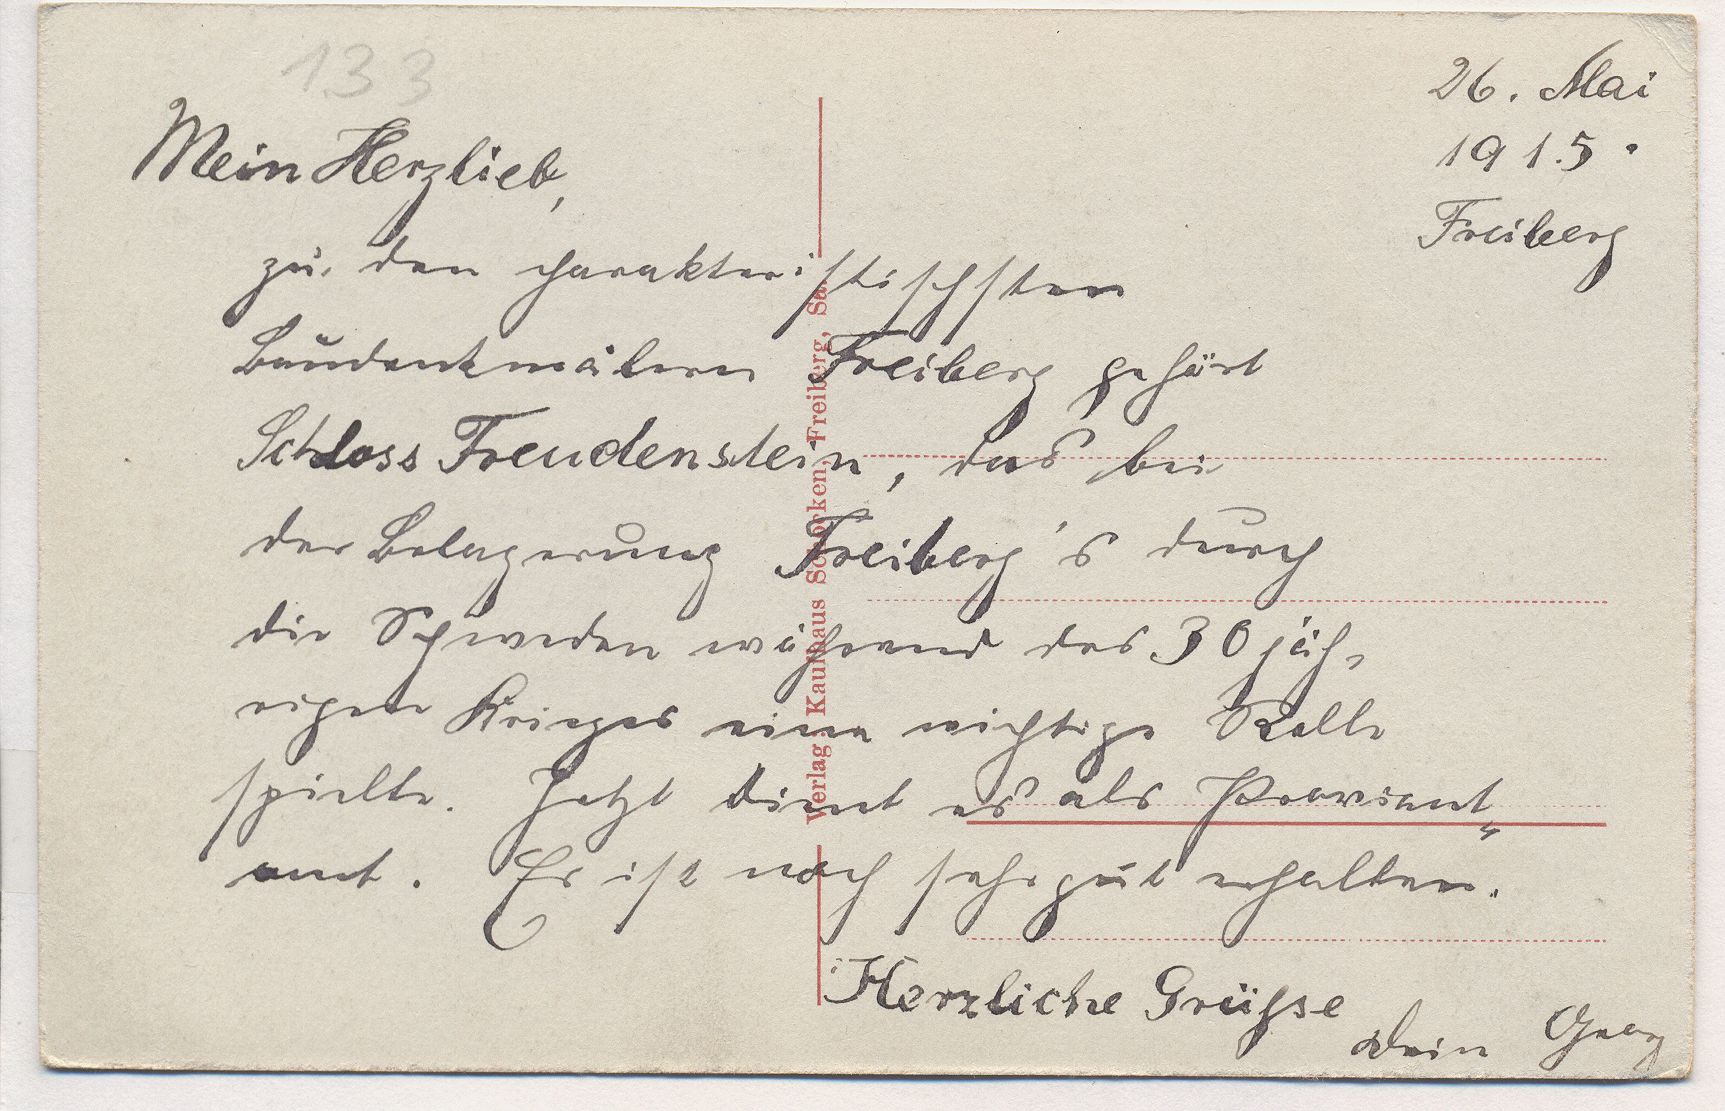 133
26. Mai
1915.
Freiberg
Mein Herzlieb,
zu den charakteristischsten
Baudenkmälern Freiberg gehört
Schloss Freudenstein, das bei
der Belagerung Freiberg's durch
die Schweden während des 30 jäh-
rigen Krieges eine wichtige Rolle
spielte. Jetzt dient es als Proviant-
amt. Es ist noch sehr gut erhalten.
Herzliche Grüsse
Dein Georg
Verlag: Kaufhaus Schocken, Freiberg, Sa.